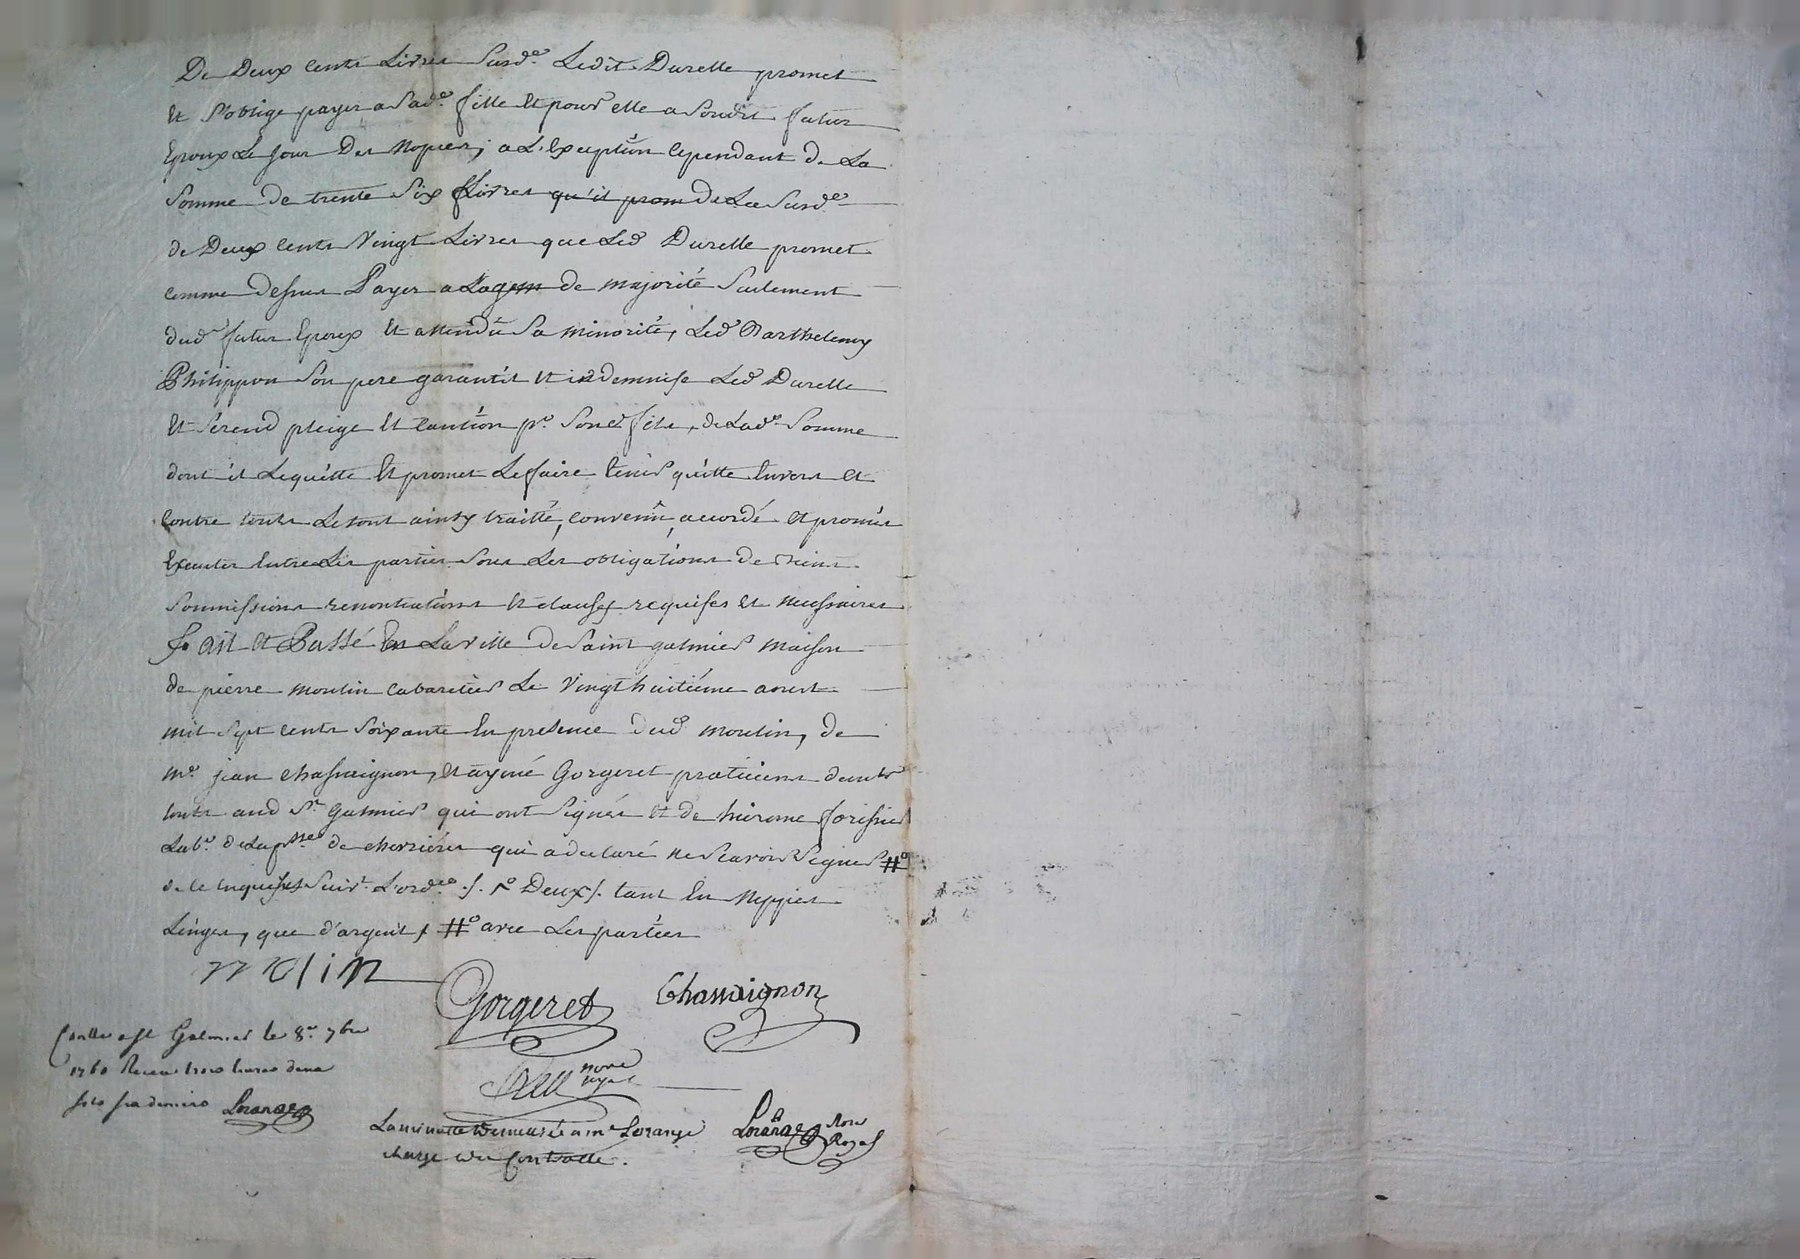 De Deux cents Livres Susd.e Ledit Durelle promet
Et s'oblige payer a Sad.e fille Et pour elle a Sondit futur
Epoux Le jour Des Nopces, a L'Exception cependant de La
Somme de trente Six Livres qu'il prom de La Susd.e
de Deux cents Vingt Livres que Led Durelle promet
comme dessus Payer a Lagem de majorité Seulement
dud futur Epoux Et attendü Sa minorité, Led Barthelemy
Philippon Son pere garantit Et indemnise Led Durelle
Et Se rend pleige Et Caution p.r Sond fils, de Lad.e Somme
dont il Le quitte Et promet Le faire tenir quitte Envers Et
Contre touts Le tout ainsy traitté, convenû, accordé Et promis
Executer Entre Les parties Sous Les obligations de biens
Soumissions renontiations Et clauses requises Et necessaires
Fait Et Passé En La ville de Saint galmier maison
de pierre moulin cabaretier Le Vingt huitiéme aoust
mil Sept cents Soixante En presence dud moulin, de
m.e jean chassaignon, Et aymé Gorgeret praticiens
touts aud S.t Galmier qui ont Signés Et de hierome
Lab.r de La p.sse de chevriéres qui a declaré ne Scavoir Signer #.o
de ce enquis Suiv.t L'ord.ce ./. r.o Deux/. tant En Nippes
Linges, que d'argent / #.o avec Les parties
molin
Gorgeret Chassaignon
Controllé a St Galmier le 8.e 7bre
1760 Receu trois livres deux
sols six deniers Lorange
no.re royal
La minutte remise a m.e Lorange
charge du Controlle.
Lorange No.re Royal